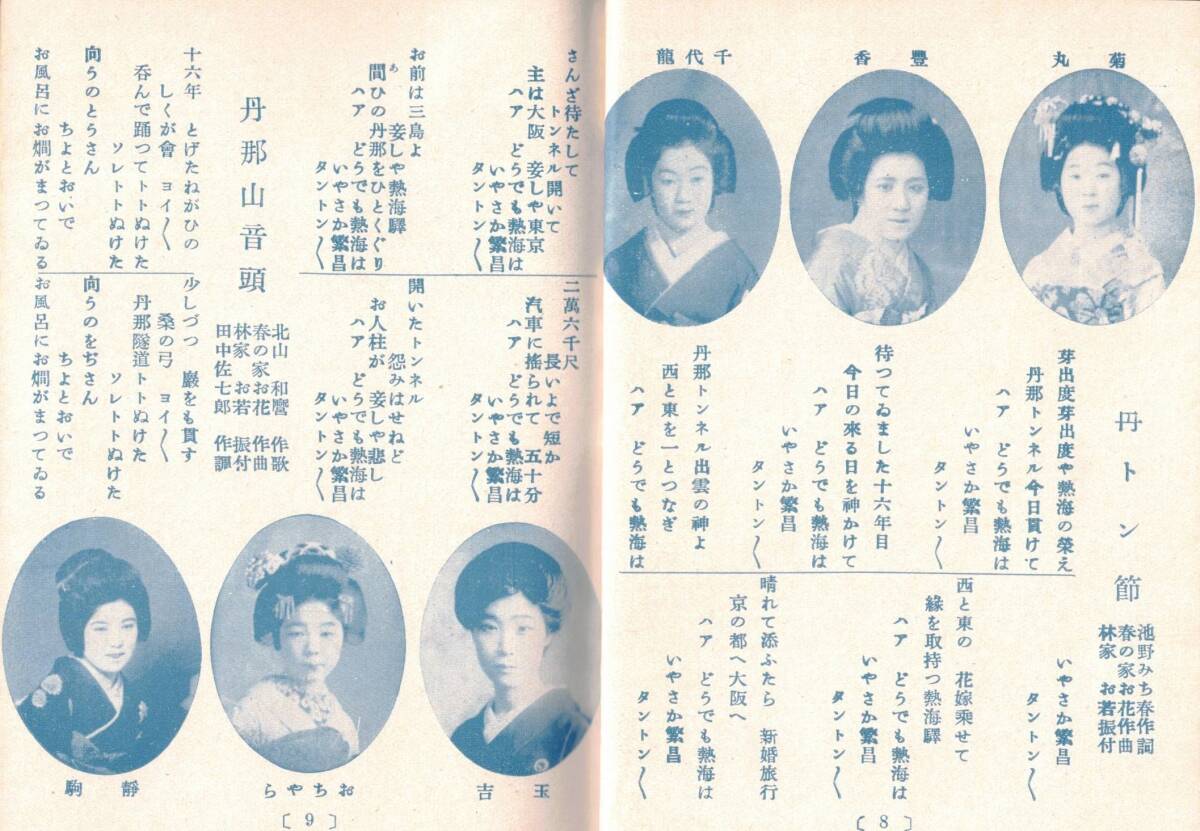 菊丸
豐香
千代龍
丹トン節
池野みち春作詞
春の家お花作曲
林家 お若振付
芽出度芽出度や熱海の榮え
丹那トンネル今日貫けて
ハア どうでも熱海は
いやさか繁昌
タントン〱
待つてゐました十六年目
今日の來る日を神かけて
ハア どうでも熱海は
いやさか繁昌
タントン〱
丹那トンネル出雲の神よ
西と東を一とつなぎ
ハア どうでも熱海は
いやさか繁昌
タントン〱
西と東の 花嫁乘せて
緣を取持つ熱海驛
ハア どうでも熱海は
いやさか繁昌
タントン〱
晴れて添ふたら 新婚旅行
京の都へ大阪へ
ハア どうでも熱海は
いやさか繁昌
タントン〱
〔8〕
さんざ待たして
トンネル開いて
主は大阪 妾しや東京
ハア どうでも熱海は
いやさか繁昌
タントン〱
お前は三島よ
妾しや熱海驛
間ひの丹那をひとくぐり
あ
ハア どうでも熱海は
いやさか繁昌
タントン〱
二萬六千尺
長いよで短か
汽車に搖られて 五十分
ハア どうでも熱海は
いやさか繁昌
タントン〱
開いたトンネル
怨みはせねど
お人柱が 妾しや悲し
ハア どうでも熱海は
いやさか繁昌
タントン〱
丹那山音頭
北山 和麿 作歌
春の家お花 作曲
林家 お若 振付
田中佐七郎 作譜
十六年 とげたねがひの
しくが會 ヨイ〱
呑んで踊つてトトぬけた
ソレトトぬけた
向うのとうさん
ちよとおいで
お風呂にお燗がまつてゐる
少しづつ 巖をも貫す
桑の弓 ヨイ〱
丹那隧道トトぬけた
ソレトトぬけた
向うのをぢさん
ちよとおいで
お風呂にお燗がまつてゐる
玉吉
おちやら
靜駒
〔9〕